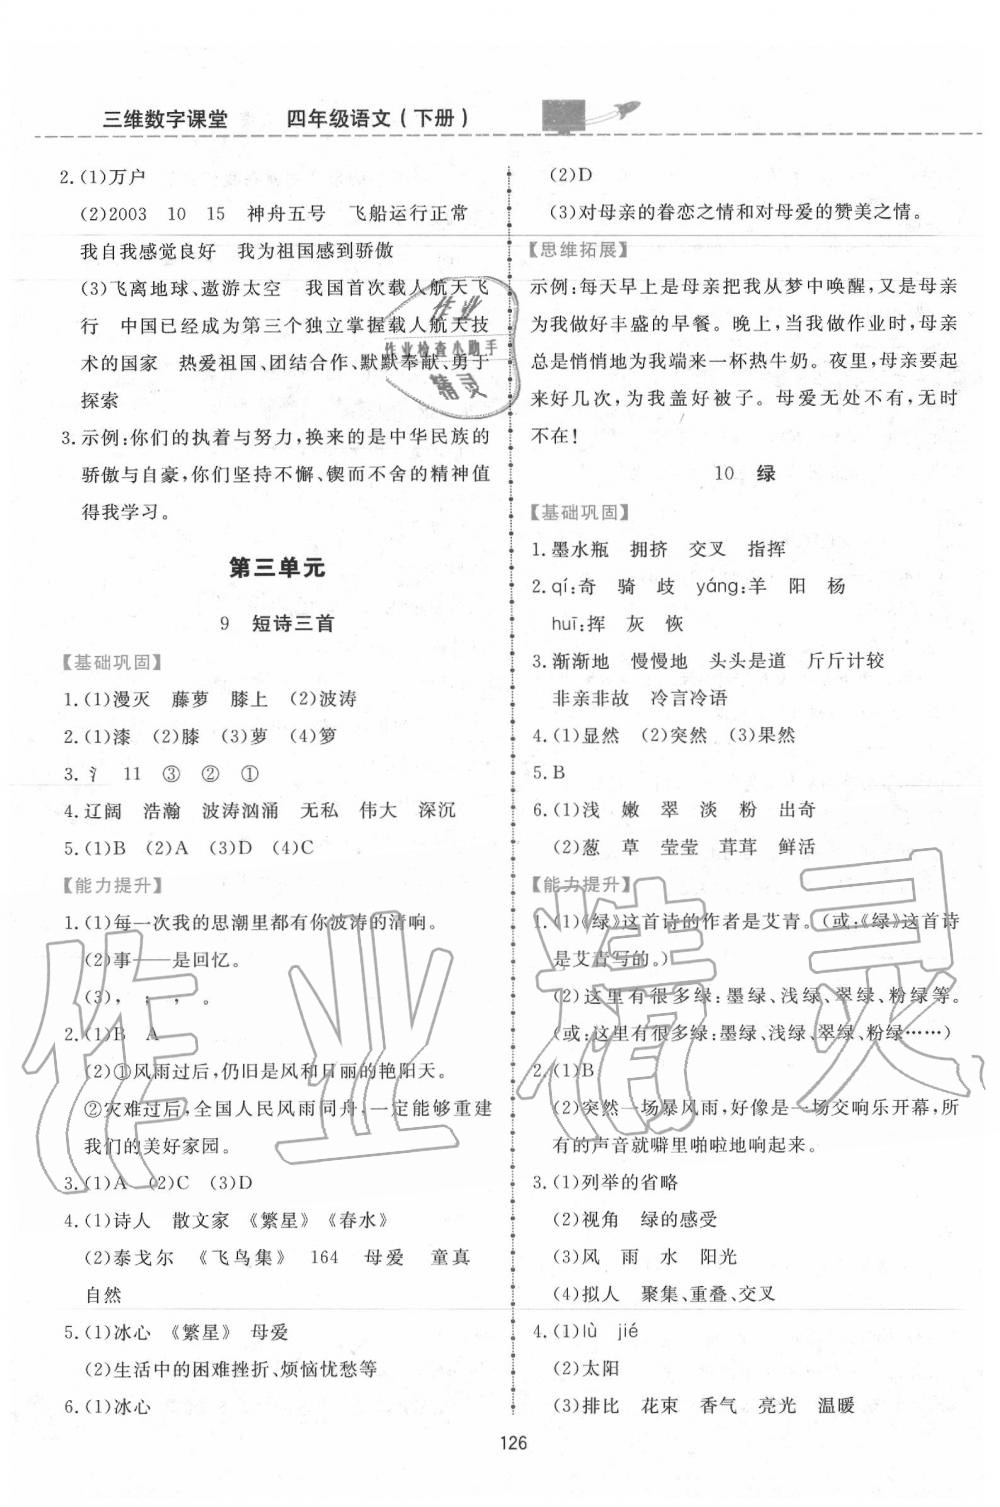 三维数字课堂 四年级语文(下册)
2.(1)万户
(2)2003 10 15 神舟五号 飞船运行正常
我自我感觉良好 我为祖国感到骄傲
(3)飞离地球、遨游太空 我国首次载人航天飞
行 中国已经成为第三个独立掌握载人航天技
术的国家 热爱祖国、团结合作、默默奉献、勇于
探索
3.示例:你们的执着与努力,换来的是中华民族的
骄傲与自豪,你们坚持不懈、锲而不舍的精神值
得我学习。
第三单元
9 短诗三首
【基础巩固】
1.(1)漫灭 藤萝 膝上 (2)波涛
2.(1)漆 (2)膝 (3)萝 (4)箩
3.氵 11 ③ ② ①
4.辽阔 浩瀚 波涛汹涌 无私 伟大 深沉
5.(1)B (2)A (3)D (4)C
【能力提升】
1.(1)每一次我的思潮里都有你波涛的清响。
(2)事——是回忆。
(3), ; , 。
2.(1)B A
(2)①风雨过后,仍旧是风和日丽的艳阳天。
②灾难过后,全国人民风雨同舟,一定能够重建
我们的美好家园。
3.(1)A (2)C (3)D
4.(1)诗人 散文家 《繁星》《春水》
(2)泰戈尔 《飞鸟集》 164 母爱 童真
自然
5.(1)冰心 《繁星》 母爱
(2)生活中的困难挫折、烦恼忧愁等
6.(1)冰心
(2)D
(3)对母亲的眷恋之情和对母爱的赞美之情。
【思维拓展】
示例:每天早上是母亲把我从梦中唤醒,又是母亲
为我做好丰盛的早餐。晚上,当我做作业时,母亲
总是悄悄地为我端来一杯热牛奶。夜里,母亲要起
来好几次,为我盖好被子。母爱无处不有,无时
不在!
10 绿
【基础巩固】
1.墨水瓶 拥挤 交叉 指挥
2.qí:奇 骑 歧 yáng:羊 阳 杨
huī:挥 灰 恢
3.渐渐地 慢慢地 头头是道 斤斤计较
非亲非故 冷言冷语
4.(1)显然 (2)突然 (3)果然
5.B
6.(1)浅 嫩 翠 淡 粉 出奇
(2)葱 草 莹莹 茸茸 鲜活
【能力提升】
1.(1)《绿》这首诗的作者是艾青。(或:《绿》这首诗
是艾青写的。)
(2)这里有很多绿:墨绿、浅绿、翠绿、粉绿等。
(或:这里有很多绿:墨绿、浅绿、翠绿、粉绿……)
2.(1)B
(2)突然一场暴风雨,好像是一场交响乐开幕,所
有的声音就噼里啪啦地响起来。
3.(1)列举的省略
(2)视角 绿的感受
(3)风 雨 水 阳光
(4)拟人 聚集、重叠、交叉
4.(1)lù jié
(2)太阳
(3)排比 花束 香气 亮光 温暖
126
作业
作业检查小助手
精灵
作业精灵